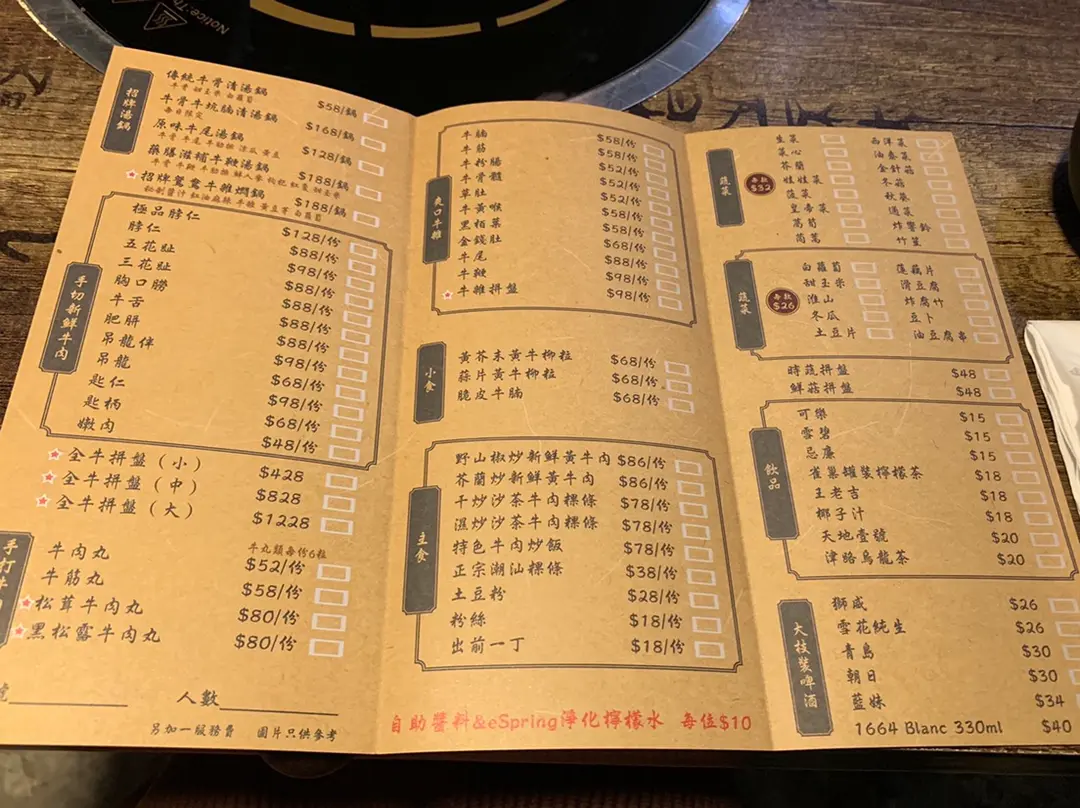 Notice: Th
招牌湯鍋
傳統牛骨清湯鍋 $58/鍋
牛骨 甜玉米 白蘿蔔
牛骨牛坑腩清湯鍋 $168/鍋
每日限定
原味牛尾湯鍋 $128/鍋
藥膳滋補牛鞭湯鍋 $188/鍋
招牌鴛鴦牛雜燜鍋 $188/鍋
手切新鮮牛肉
極品脖仁 $128/份
脖仁 $88/份
五花趾 $98/份
三花趾 $88/份
胸口朥 $88/份
牛舌 $88/份
肥胼 $88/份
吊龍伴 $98/份
吊龍 $68/份
匙仁 $98/份
匙柄 $68/份
嫩肉 $48/份
全牛拼盤(小) $428
全牛拼盤(中) $828
全牛拼盤(大) $1228
手打牛
牛丸類每份6粒
牛肉丸 $52/份
牛筋丸 $58/份
松茸牛肉丸 $80/份
黑松露牛肉丸 $80/份
人數
另加一服務費 圖片只供參考
爽口牛雜
牛腩 $58/份
牛筋 $58/份
牛粉腸 $52/份
牛骨髓 $52/份
草肚 $52/份
牛黃喉 $58/份
黑栢葉 $68/份
金錢肚 $88/份
牛尾 $98/份
牛鞭
牛雜拼盤 $98/份
小食
黃芥末黃牛柳粒 $68/份
蒜片黃牛柳粒 $68/份
脆皮牛腩 $68/份
主食
野山椒炒新鮮黃牛肉 $86/份
芥蘭炒新鮮黃牛肉 $86/份
干炒沙茶牛肉粿條 $78/份
濕炒沙茶牛肉粿條 $78/份
特色牛肉炒飯 $78/份
正宗潮汕粿條 $38/份
土豆粉 $28/份
粉絲 $18/份
出前一丁 $18/份
自助醬料&eSpring淨化檸檬水 每位$10
蔬菜
每款 $32
生菜 西洋菜
菜心 油麥菜
芥蘭 金針菇
娃娃菜 冬菇
菠菜 秋葵
皇帝菜 通菜
萵筍 炸響鈴
茼蒿 竹笙
蔬菜
每款 $26
白蘿蔔 蓮藕片
甜玉米 滑豆腐
淮山 炸腐竹
冬瓜 豆卜
土豆片 油豆腐串
時蔬拼盤 $48
鮮菇拼盤 $48
飲品
可樂 $15
雪碧 $15
忌廉 $15
雀巢罐裝檸檬茶 $18
王老吉 $18
椰子汁 $18
天地壹號 $20
津路烏龍茶 $20
大枝裝啤酒
獅威 $26
雪花純生 $26
青島 $30
朝日 $30
藍妹 $34
1664 Blanc 330ml $40